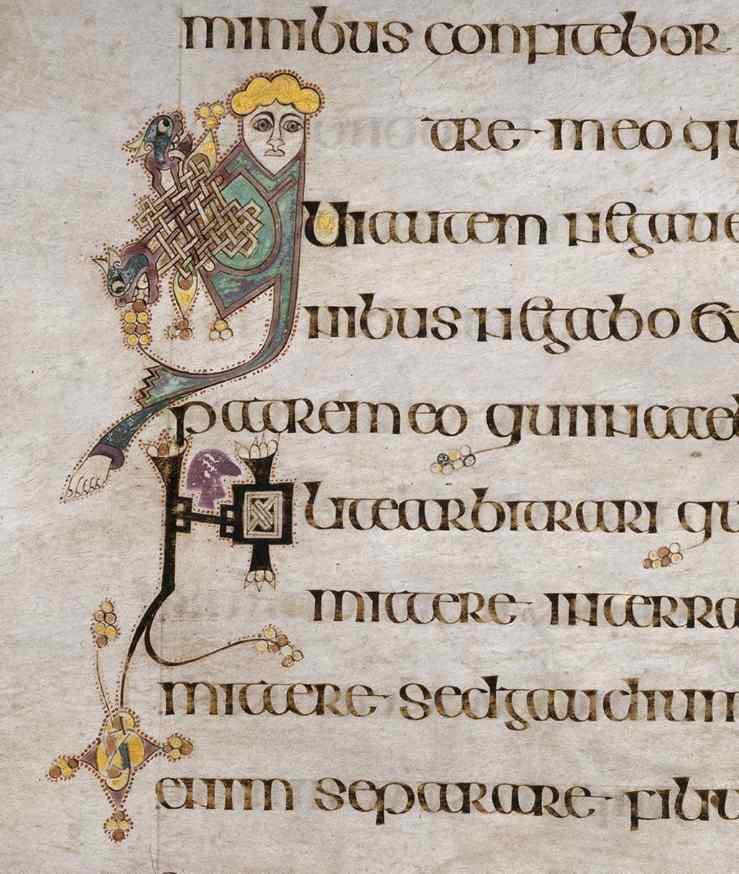 minibus confitebor
tre meo qu
Qui autem negaue
nibus negabo et
patre meo qui in cael
Nolite arbitrari qu
mittere in terra
mittere sed gaudium
enim separare filiu